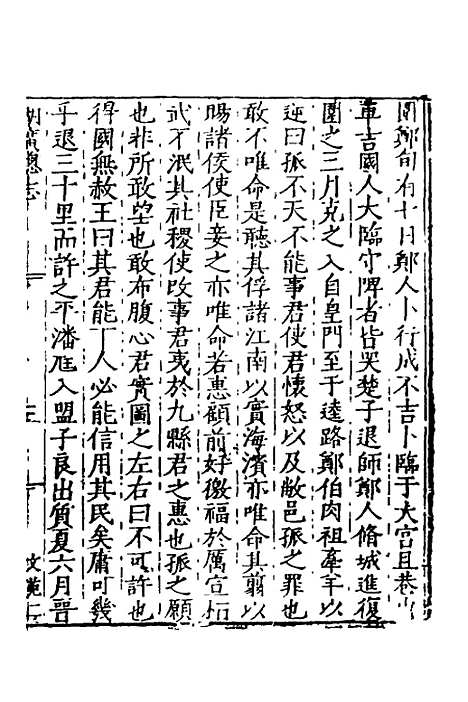 圍鄭旬有七日鄭人卜行成不吉卜臨于大宮且巷出
車吉國人大臨守陴者皆哭楚子退師鄭人脩城進復
圍之三月克之入自皇門至于逵路鄭伯肉袒牽羊以
逆曰孤不天不能事君使君懷怒以及敝邑孤之罪也
敢不唯命是聽其俘諸江南以實海濱亦唯命其翦以
賜諸侯使臣妾之亦唯命若惠顧前好徼福於厲宣桓
武不泯其社稷使攺事君夷於九縣君之惠也孤之願
也非所敢望也敢布腹心君實圖之左右曰不可許也
得國無赦王曰其君能下人必能信用其民矣庸可幾
乎退三十里而許之平潘尫入盟子良出質夏六月晉
湖廣總志
文苑一